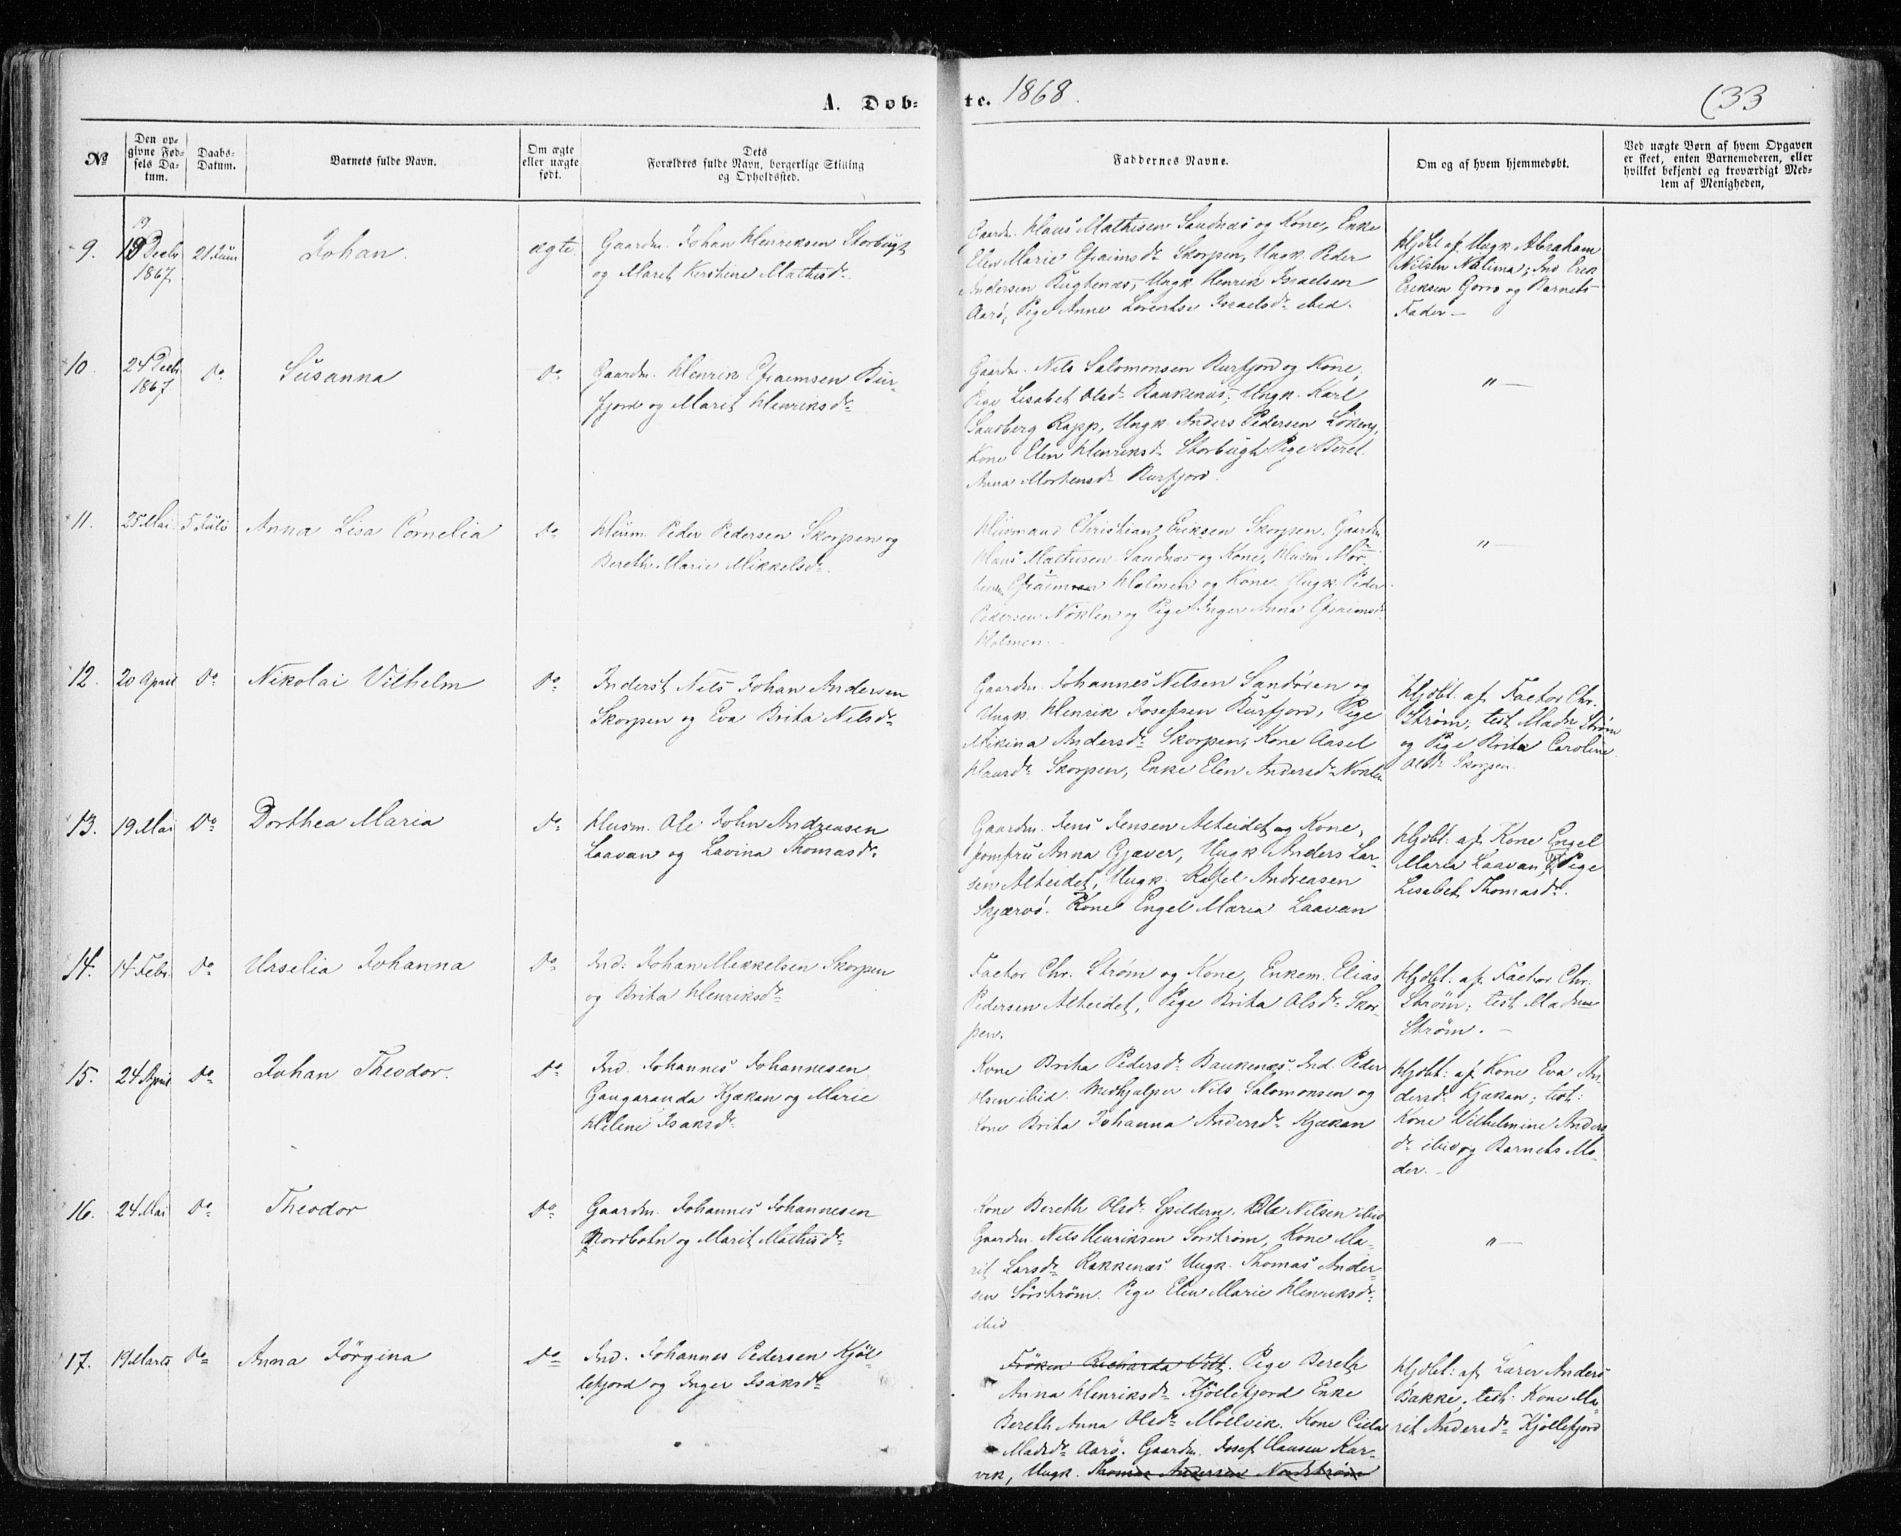 A. Døbte. 1868.
(33
No
Den opgivne Fødsels Datum.
Daabs-Datum.
Barnets fulde Navn.
Om ægte eller uægte født.
Dets Forældres fulde Navn, borgerlige Stilling og Opholdssted.
Faddernes Navne.
Om og af hvem hjemmedøbt.
Ved uægte Børn af hvem Opgaven er skeet, enten Barnemoderen, eller hvilket bekjendt og troværdigt Medlem af Menigheden,
9.
19 Decbr 1867.
21 Juni
Johan.
ægte
Gaardm. Johan Henriksen Storbugt
og Marit Kirstine Mathisdr.
Gaardm. Hans Mathisen Sandnæs og Kone, Enke
Elen Marie Efraimsdr. Skorpen, Ungk. Peder
Andersen Bugtenæs, Ungk. Henrik Israelsen
Aarø, Pige Anne Lorentse Israelsdr. ibid.
Hjdbt. af Ungk. Abraham
Nilsen Nalima; Ind. Erik
Eriksen Goro og Barnets
Fader —
10.
24 Decbr 1867.
Do.
Susanna
Do.
Gaardm. Henrik Efraimsen Bur-
fjord og Marit Henriksdr.
Gaardm. Nils Salomonsen Burfjord og Kone,
Pige Lisabet Olsdr. Baukenæs, Ungk. Karl
Sandberg Rapp, Ungk. Anders Pedersen Løkeng,
Kone Elen Henriksdr. Storbugt Pige Beret
Anna Mortensdr. Burfjord.
" —
11.
25 Mai
5 Juli
Anna Lisa Cornelia
Do.
Husm. Peder Pedersen Skorpen og
Bereth Marie Mikkelsdr.
Husmand Christian Eriksen Skorpen, Gaardm.
Hans Mathisen Sandnæs og Kone, Husm. Mor-
ten Efraimsen Holmen og Kone. Ungk. Peder
Pedersen Nøklen og Pige Inger Anna Efraimsdr.
Holmen. —
" —
12.
20 April
Do.
Nikolai Vilhelm
Do.
Inderst Nils Johan Andersen
Skorpen og Eva Brita Nilsdr.
Gaardm. Johannes Nilsen Sandøren og
Ungk. Henrik Josefsen Burfjord, Pige
Nikina Andersdr. Skorpen, Kone Aasel
Hansdr. Skorpen, Enke Elen Andersdr. Noklen
Hjdbt. af Factor Chr.
Strøm; test. Madm. Strøm
og Pige Brita Caroline
Olsdr. Skorpen.
13.
19 Mai
Do.
Dorthea Maria
Do.
Husm. Ole John Andreasen
Laavan og Lavina Thomasdr.
Gaardm. Jens Jensen Alteidet og Kone,
Jomfru Anna Gjæver, Ungk. Anders Lar-
sen Alteidet, Ungk. Rafel Andreasen
Skjærvø. Kone Engel Maria Laavan
Hjdbt: af Kone Engel
Maria Laavan, Pige
Lisabet Thomasdr.
14.
14 Febr.
Do.
Urselia Johanna
Do.
Ind: Johan Mikkelsen Skorpen
og Brita Henriksdr.
Factor Chr. Strøm og Kone, Enkem. Elias
Pedersen Alteidet, Pige Brita Olsdr. Skor-
pen.
Hjdbt: af Factor Chr.
Strøm; test. Madme
Strøm. —
15.
24 April
Do.
Johan Theodor.
Do.
Ind. Johannes Johannesen
Gangaranda Kjækan og Marie
Helene Isaksdr.
Kone Brita Pedersdr. Baukenæs, Ind. Peder
Olsen ibid. Medhjælper Nils Salomonsen og
Kone Brita Johanna Andersdr. Kjækan
Hjdbt: af Kone Eva An-
dersdr. Kjækan; test:
Kone Vilhelmine Anders-
dr. ibid og Barnets Mo-
der. —
16.
24 Mai
Do.
Theodor
Do.
Gaardm. Johannes Johannesen
Nordbotn og Marit Mathisdr.
Kone Bereth Olsdr. Spildern. Ole Nilsen ibid
Gaardm. Nils Henriksen Sørstrøm, Kone Ma-
rit Larsdr. Rakkenæs. Ungk. Thomas Ander-
sen Sørstrøm. Pige Elen Marie Henriksdr.
ibid
" —
17.
19 Marts
Do.
Anna Jørgina
Do.
Ind. Johannes Pedersen Kjøl-
lefjord og Inger Isaksdr.
Frøken Richarda Vitt. Pige Bereth
Anna Henriksdr. Kjøllefjord Enke
Bereth Anna Olsdr. Mollvik. Kone Cicilie
Madsdr. Aarø. Gaardm. Josef Hansen Kar-
vik, Ungk. Thomas Andersen Nordstrøm
Hjdbt: af Lærer Anders
Bakke; test: Kone Ma-
rit Andersdr. Kjøllefjord